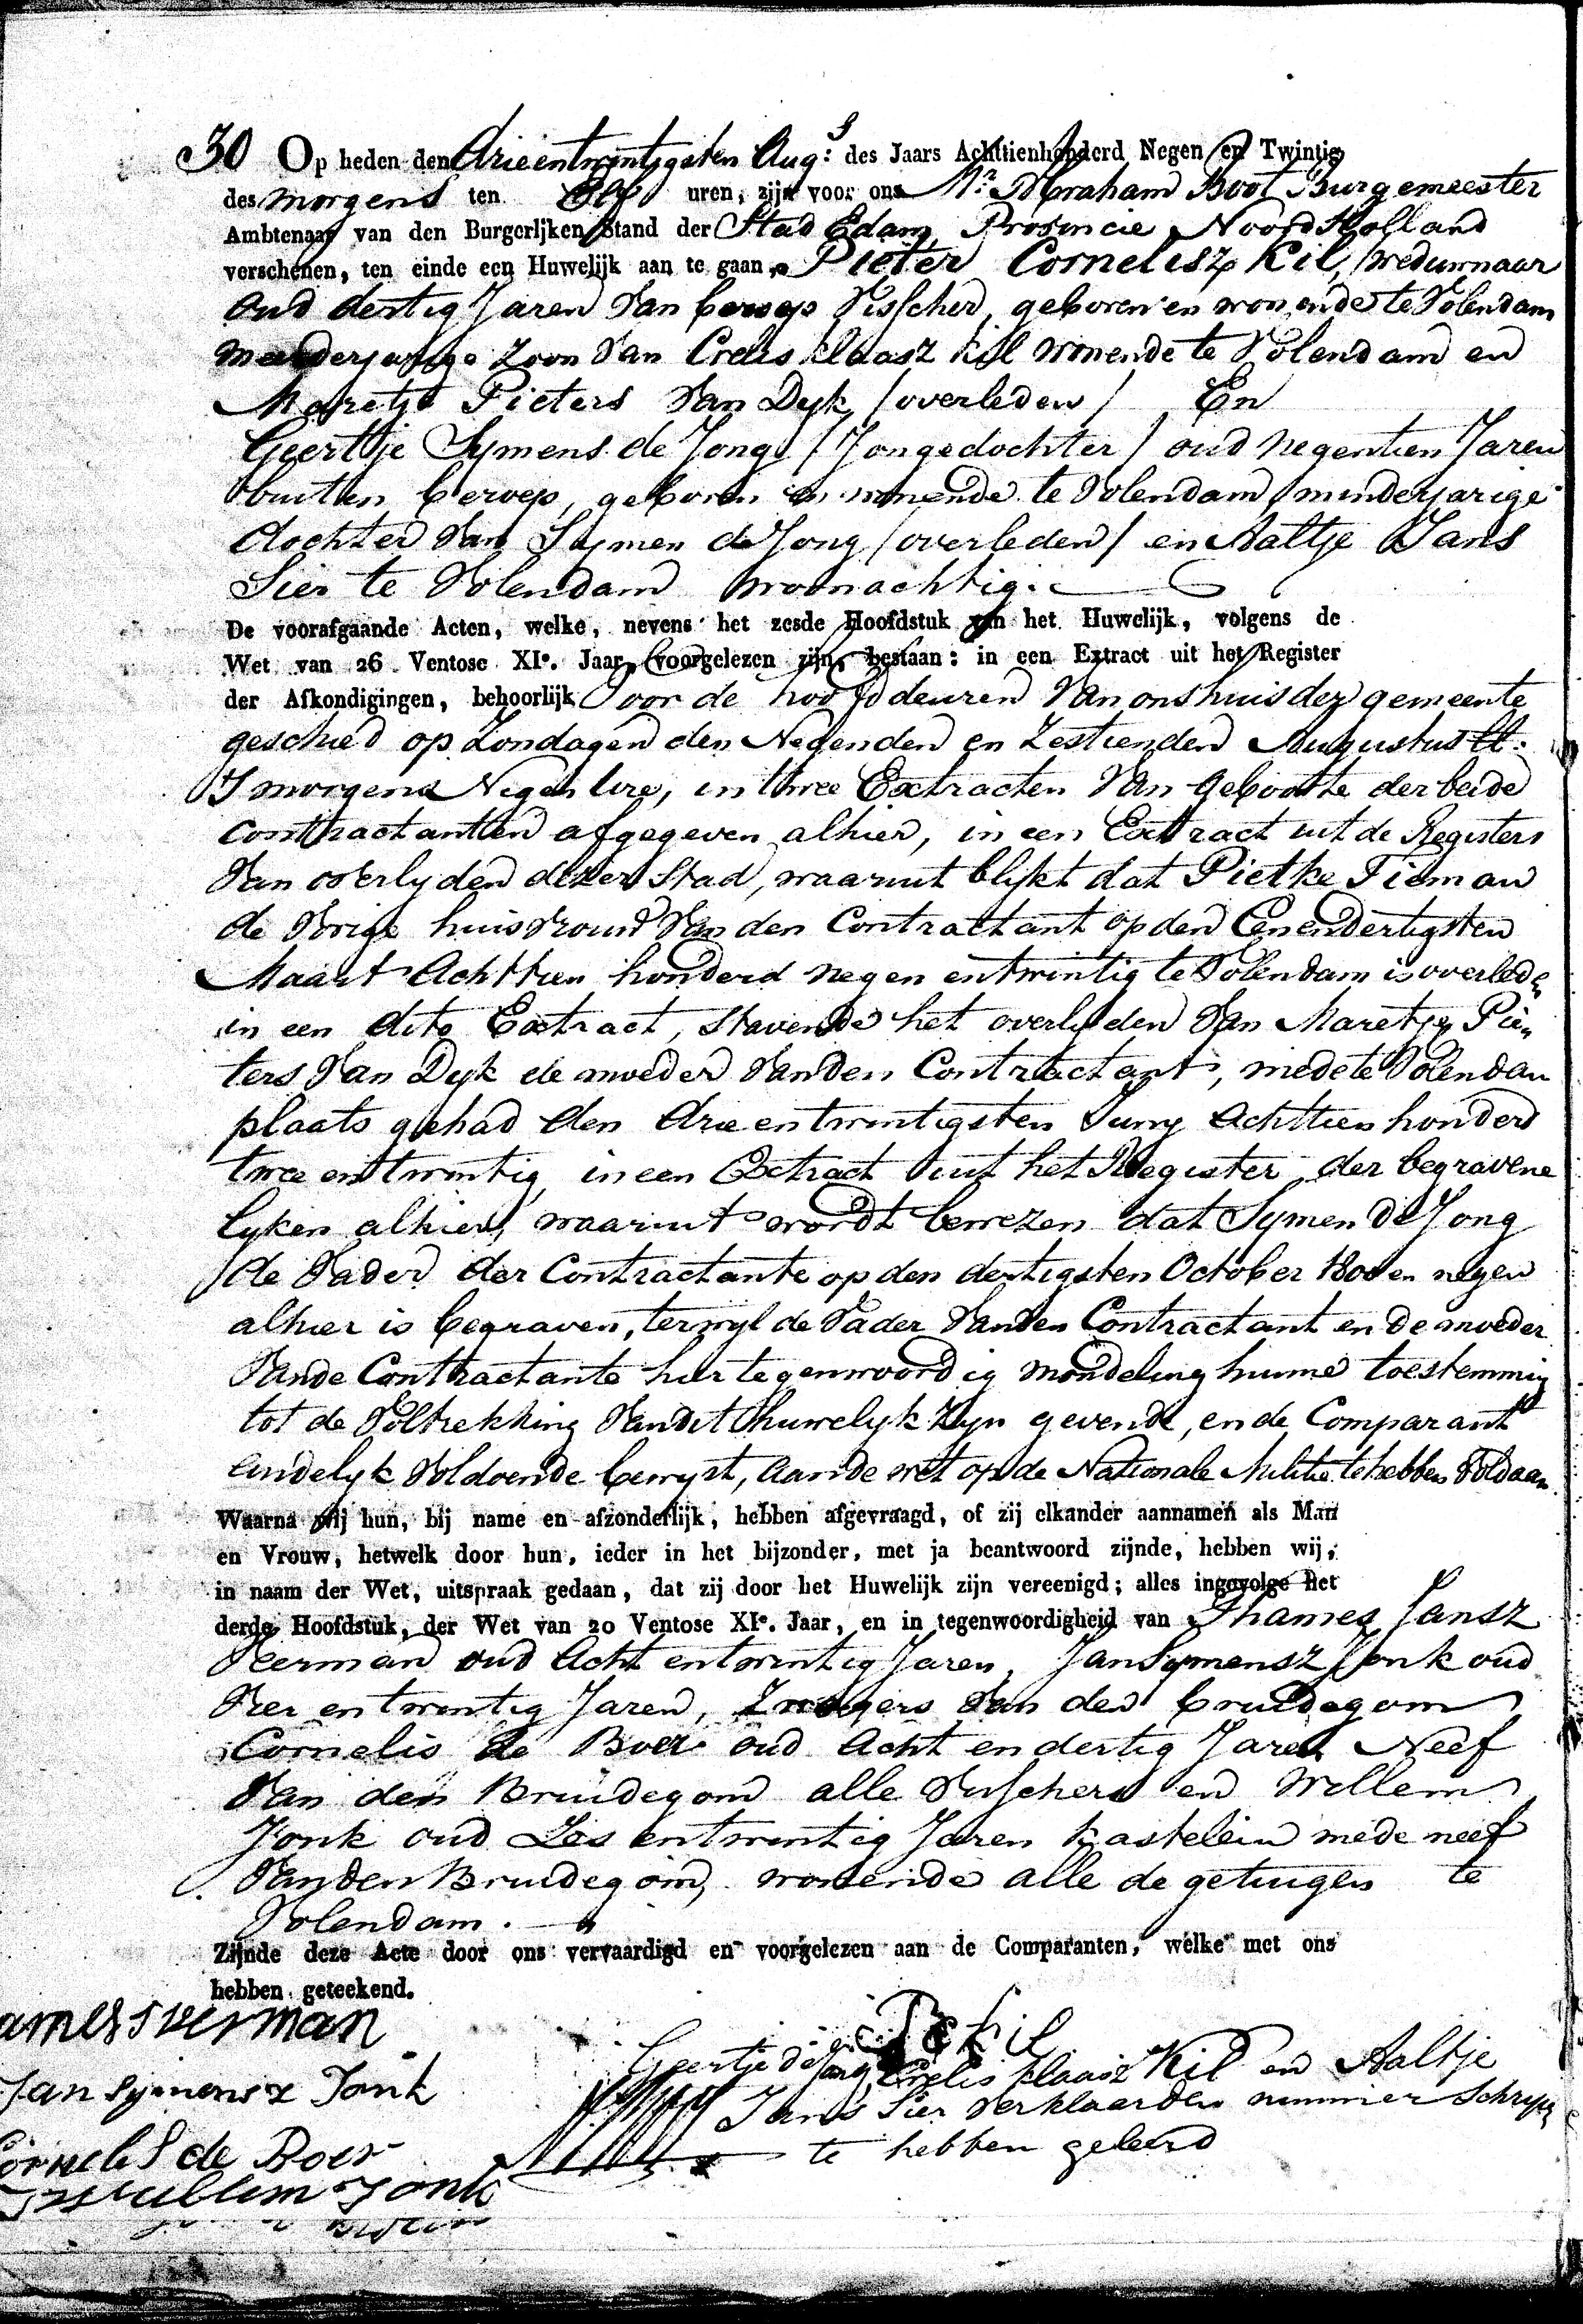 30 Op heden den drieentwintigsten Augs: des Jaars Achttienhonderd Negen en Twintig
des morgens ten Elf uren, zijn voor ons Mr. Abraham Boot Burgemeester
Ambtenaar van den Burgerlijken Stand der Stad Edam, Provincie Noord Holland
verschenen, ten einde een Huwelijk aan te gaan, Pieter Cornelisz Kil, weduwnaar
oud dertig Jaren van beroep Visscher, geboren en wonende te Volendam
meerderjarige zoon van Crelis Klaasz Kil wonende te Volendam en
Maretje Pieters van Dyk /overleden/ En
Geertje Symens de Jong /Jongedochter/ oud negentien Jaren
buiten beroep, geboren en wonende te Volendam, minderjarige
dochter van Symen de Jong /overleden/ en Aaltje Jans
Sier te Volendam woonachtig.
De voorafgaande Acten, welke, nevens het zesde Hoofdstuk van het Huwelijk, volgens de
Wet van 26 Ventose XIe. Jaar, voorgelezen zijn, bestaan: in een Extract uit het Register
der Afkondigingen, behoorlijk voor de hoofddeuren van ons huis dez gemeente
geschied op Zondagen den Negenden en Zestienden Augustus ll.
s morgens Negen Ure, in twee Extracten van geboorte der beide
contractanten afgegeven alhier, in een Extract uit de Registers
van overlyden dezer Stad, waaruit blykt dat Pietke Tieman
de vorige huisvrouw van den Contractant op den Eenendertigsten
Maart Achttien honderd negen entwintig te Volendam is overleden
in een dito Extract, stavende het overlyden van Maretje Pie„
ters van Dyk de moeder van den Contractant, mede te Volendam
plaats gehad den drie entwintigsten Juny Achttien honderd
twee entwintig, in een Extract uit het Register der begravene
lyken alhier, waaruit wordt bewezen dat Symen de Jong
de Vader der Contractante op den dertigsten October 1800 en negen
alhier is begraven, terwyl de Vader van den Contractant en de moeder
van de Contractante hier tegenwoordig mondeling hunne toestemming
tot de voltrekking van dit huwelyk zyn gevende, en de Comparant
eindelyk voldoende bewyst, aan de wet op de Nationale Militie te hebben voldaan.
Waarna wij hun, bij name en afzonderlijk, hebben afgevraagd, of zij elkander aannamen als Man
en Vrouw, hetwelk door hun, ieder in het bijzonder, met ja beantwoord zijnde, hebben wij,
in naam der Wet, uitspraak gedaan, dat zij door het Huwelijk zijn vereenigd; alles ingevolge het
derde Hoofdstuk, der Wet van 20 Ventose XIe. Jaar, en in tegenwoordigheid van Thames Jansz
Veerman oud Acht entwintig Jaren, Jan Symensz Jonk oud
Vier entwintig Jaren, Zwagers van den bruidegom
Cornelis de Boer oud Acht en dertig Jaren Neef
van den Bruidegom alle Visschers en Willem
Jonk oud Zes entwintig Jaren kastelein mede neef
van den Bruidegom, wonende alle de getuigen te
Volendam.
Zijnde deze Acte door ons vervaardigd en voorgelezen aan de Comparanten, welke met ons
hebben geteekend.
ames veerman
P C Kil
Geertje de Jong, Crelis Klaasz Kil en Aaltje
Jan symensz Jonk
Jans Sier verklaarden nimmer schryven
Cornelis de Boer
te hebben geleerd
Willem Jonk